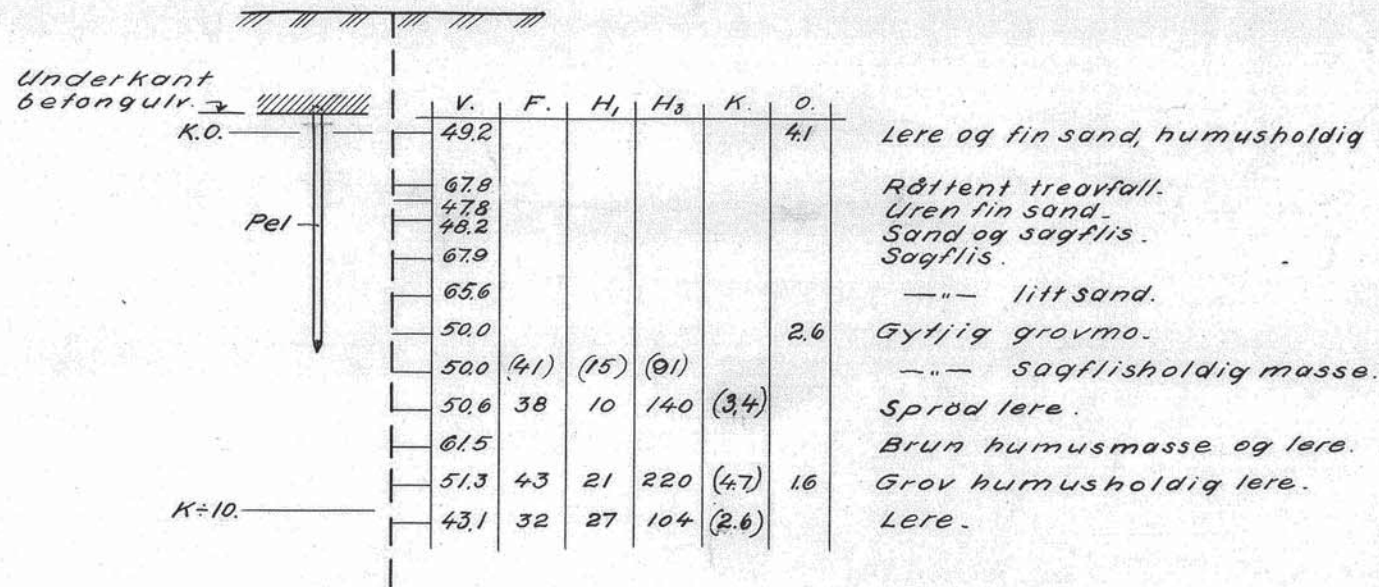 Underkant
betongulv.
V. F. H₁ H₃ K. O.
K.O. 49.2 4.1 Lere og fin sand, humusholdig
67.8 Råttent treavfall.
47.8 Uren fin sand.
Pel 48.2 Sand og sagflis.
67.9 Sagflis.
65.6 —"— litt sand.
50.0 2.6 Gytjig grovmo.
50.0 (41) (15) (91) —"— sagflisholdig masse.
50.6 38 10 140 (3,4) Spröd lere.
61.5 Brun humusmasse og lere.
51.3 43 21 220 (4.7) 1.6 Grov humusholdig lere.
K÷10. 43.1 32 27 104 (2.6) Lere.